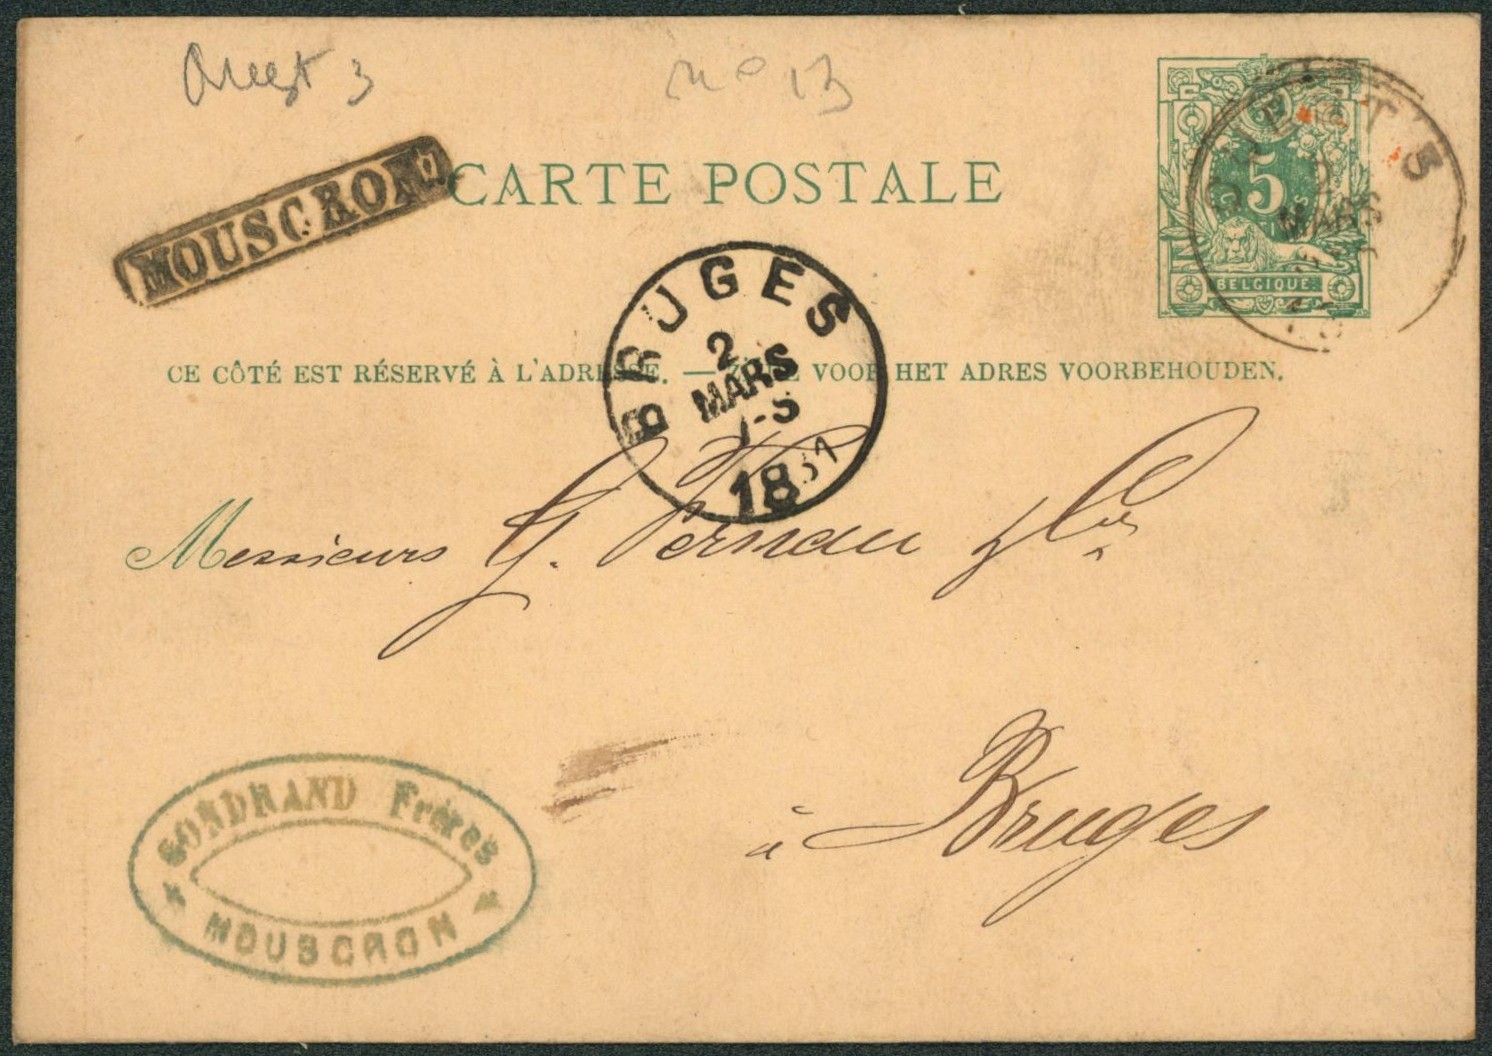 Ouest 3
n° 13
MOUSCRON
CARTE POSTALE
5
BELGIQUE
OUEST 3
MARS
BRUGES
2
MARS
-S
1881
CE CÔTÉ EST RÉSERVÉ À L'ADRESSE. — ZIJDE VOOR HET ADRES VOORBEHOUDEN.
Messieurs G. Pernau
à Bruges
GONDRAND Frères
MOUSCRON